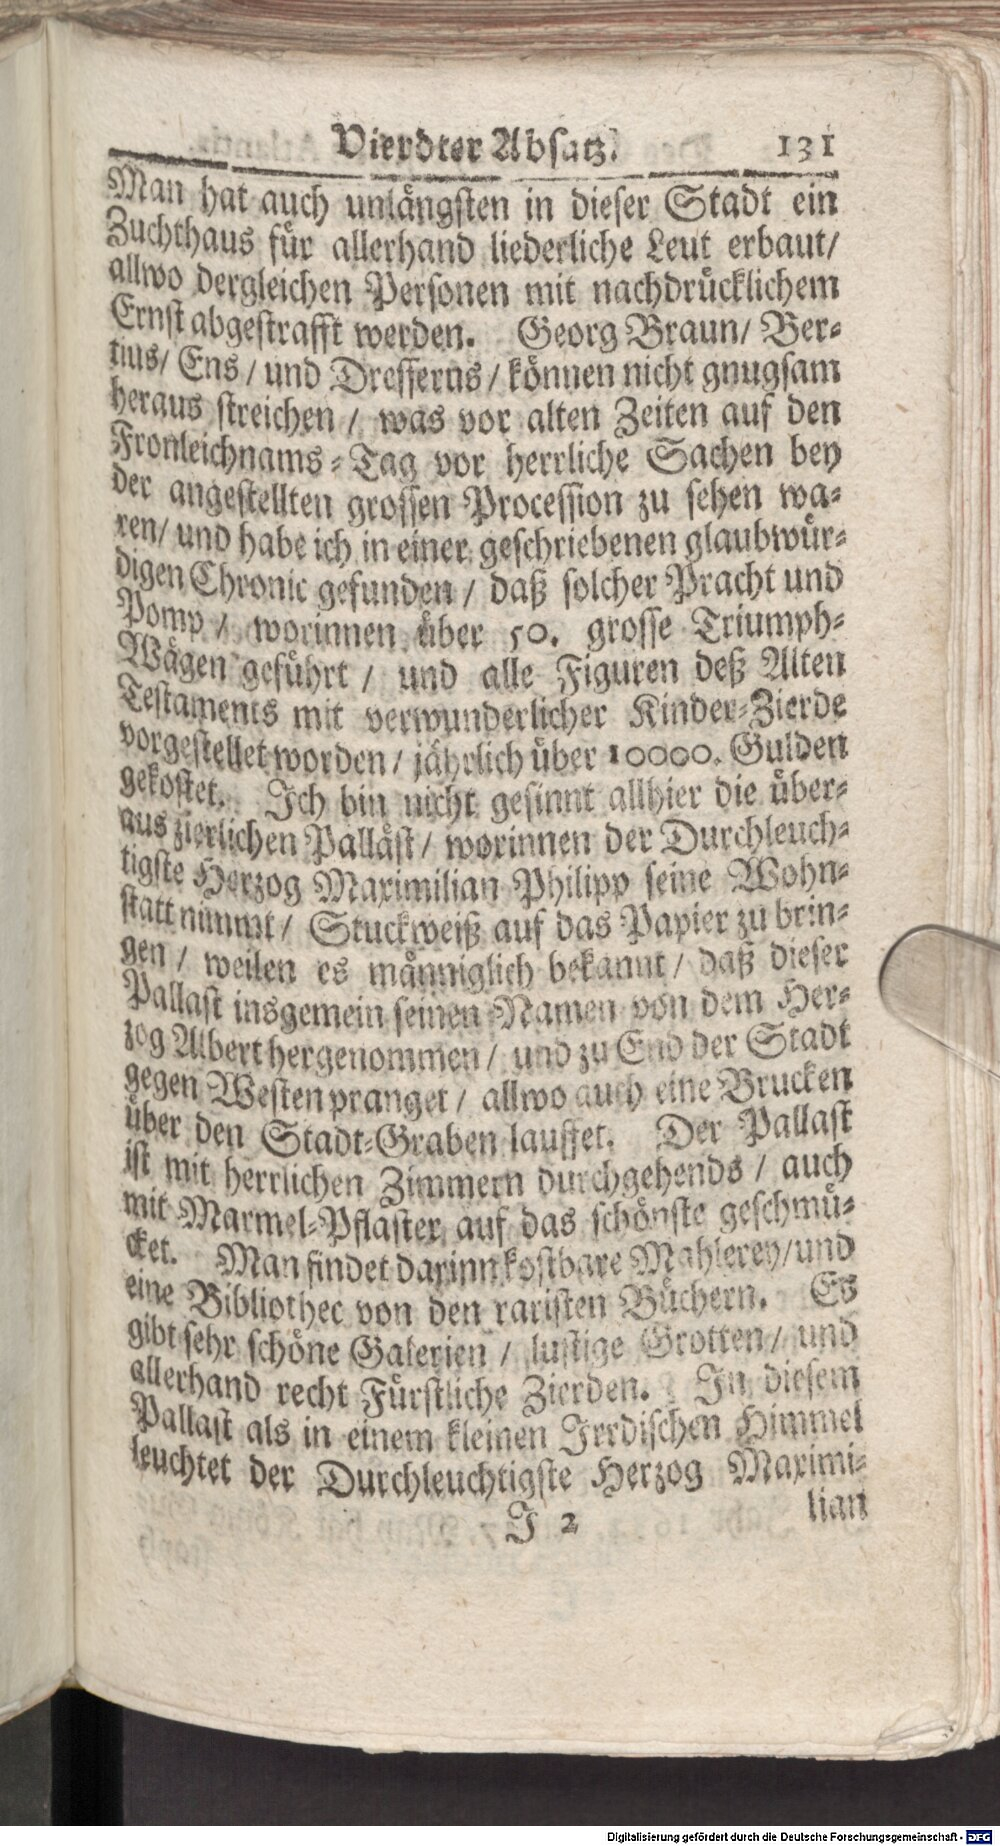 Vierdter Absatz. 131
Man hat auch unlängsten in dieser Stadt ein
Zuchthaus für allerhand liederliche Leut erbaut/
allwo dergleichen Personen mit nachdrücklichem
Ernst abgestrafft werden. Georg Braun/ Ber-
tius/ Ens/ und Dresserus/ können nicht gnugsam
heraus streichen/ was vor alten Zeiten auf den
Fronleichnams-Tag vor herrliche Sachen bey
der angestellten grossen Procession zu sehen wa-
ren/ und habe ich in einer geschriebenen glaubwür-
digen Chronic gefunden/ daß solcher Pracht und
Pomp/ worinnen über 50. grosse Triumph-
Wägen geführt/ und alle Figuren deß Alten
Testaments mit verwunderlicher Kinder-Zierde
vorgestellet worden/ jährlich über 10000. Gulden
gekostet. Ich bin nicht gesinnt allhier die über-
aus zierlichen Palläst/ worinnen der Durchleuch-
tigste Herzog Maximilian Philipp seine Wohn-
statt nimmt/ Stuckweiß auf das Papier zu brin-
gen/ weilen es männiglich bekannt/ daß dieser
Pallast insgemein seinen Namen von dem Her-
zog Albert hergenommen/ und zu End der Stadt
gegen Westen pranget/ allwo auch eine Brucken
über den Stadt-Graben lauffet. Der Pallast
ist mit herrlichen Zimmern durchgehends/ auch
mit Marmel-Pflaster auf das schönste geschmü-
cket. Man findet darinn kostbare Mahlerey/ und
eine Bibliothec von den raristen Büchern. Es
gibt sehr schöne Galerien/ lustige Grotten/ und
allerhand recht Fürstliche Zierden. In diesem
Pallast als in einem kleinen Irrdischen Himmel
leuchtet der Durchleuchtigste Herzog Maximi-
J 2 lian
Digitalisierung gefördert durch die Deutsche Forschungsgemeinschaft - DFG